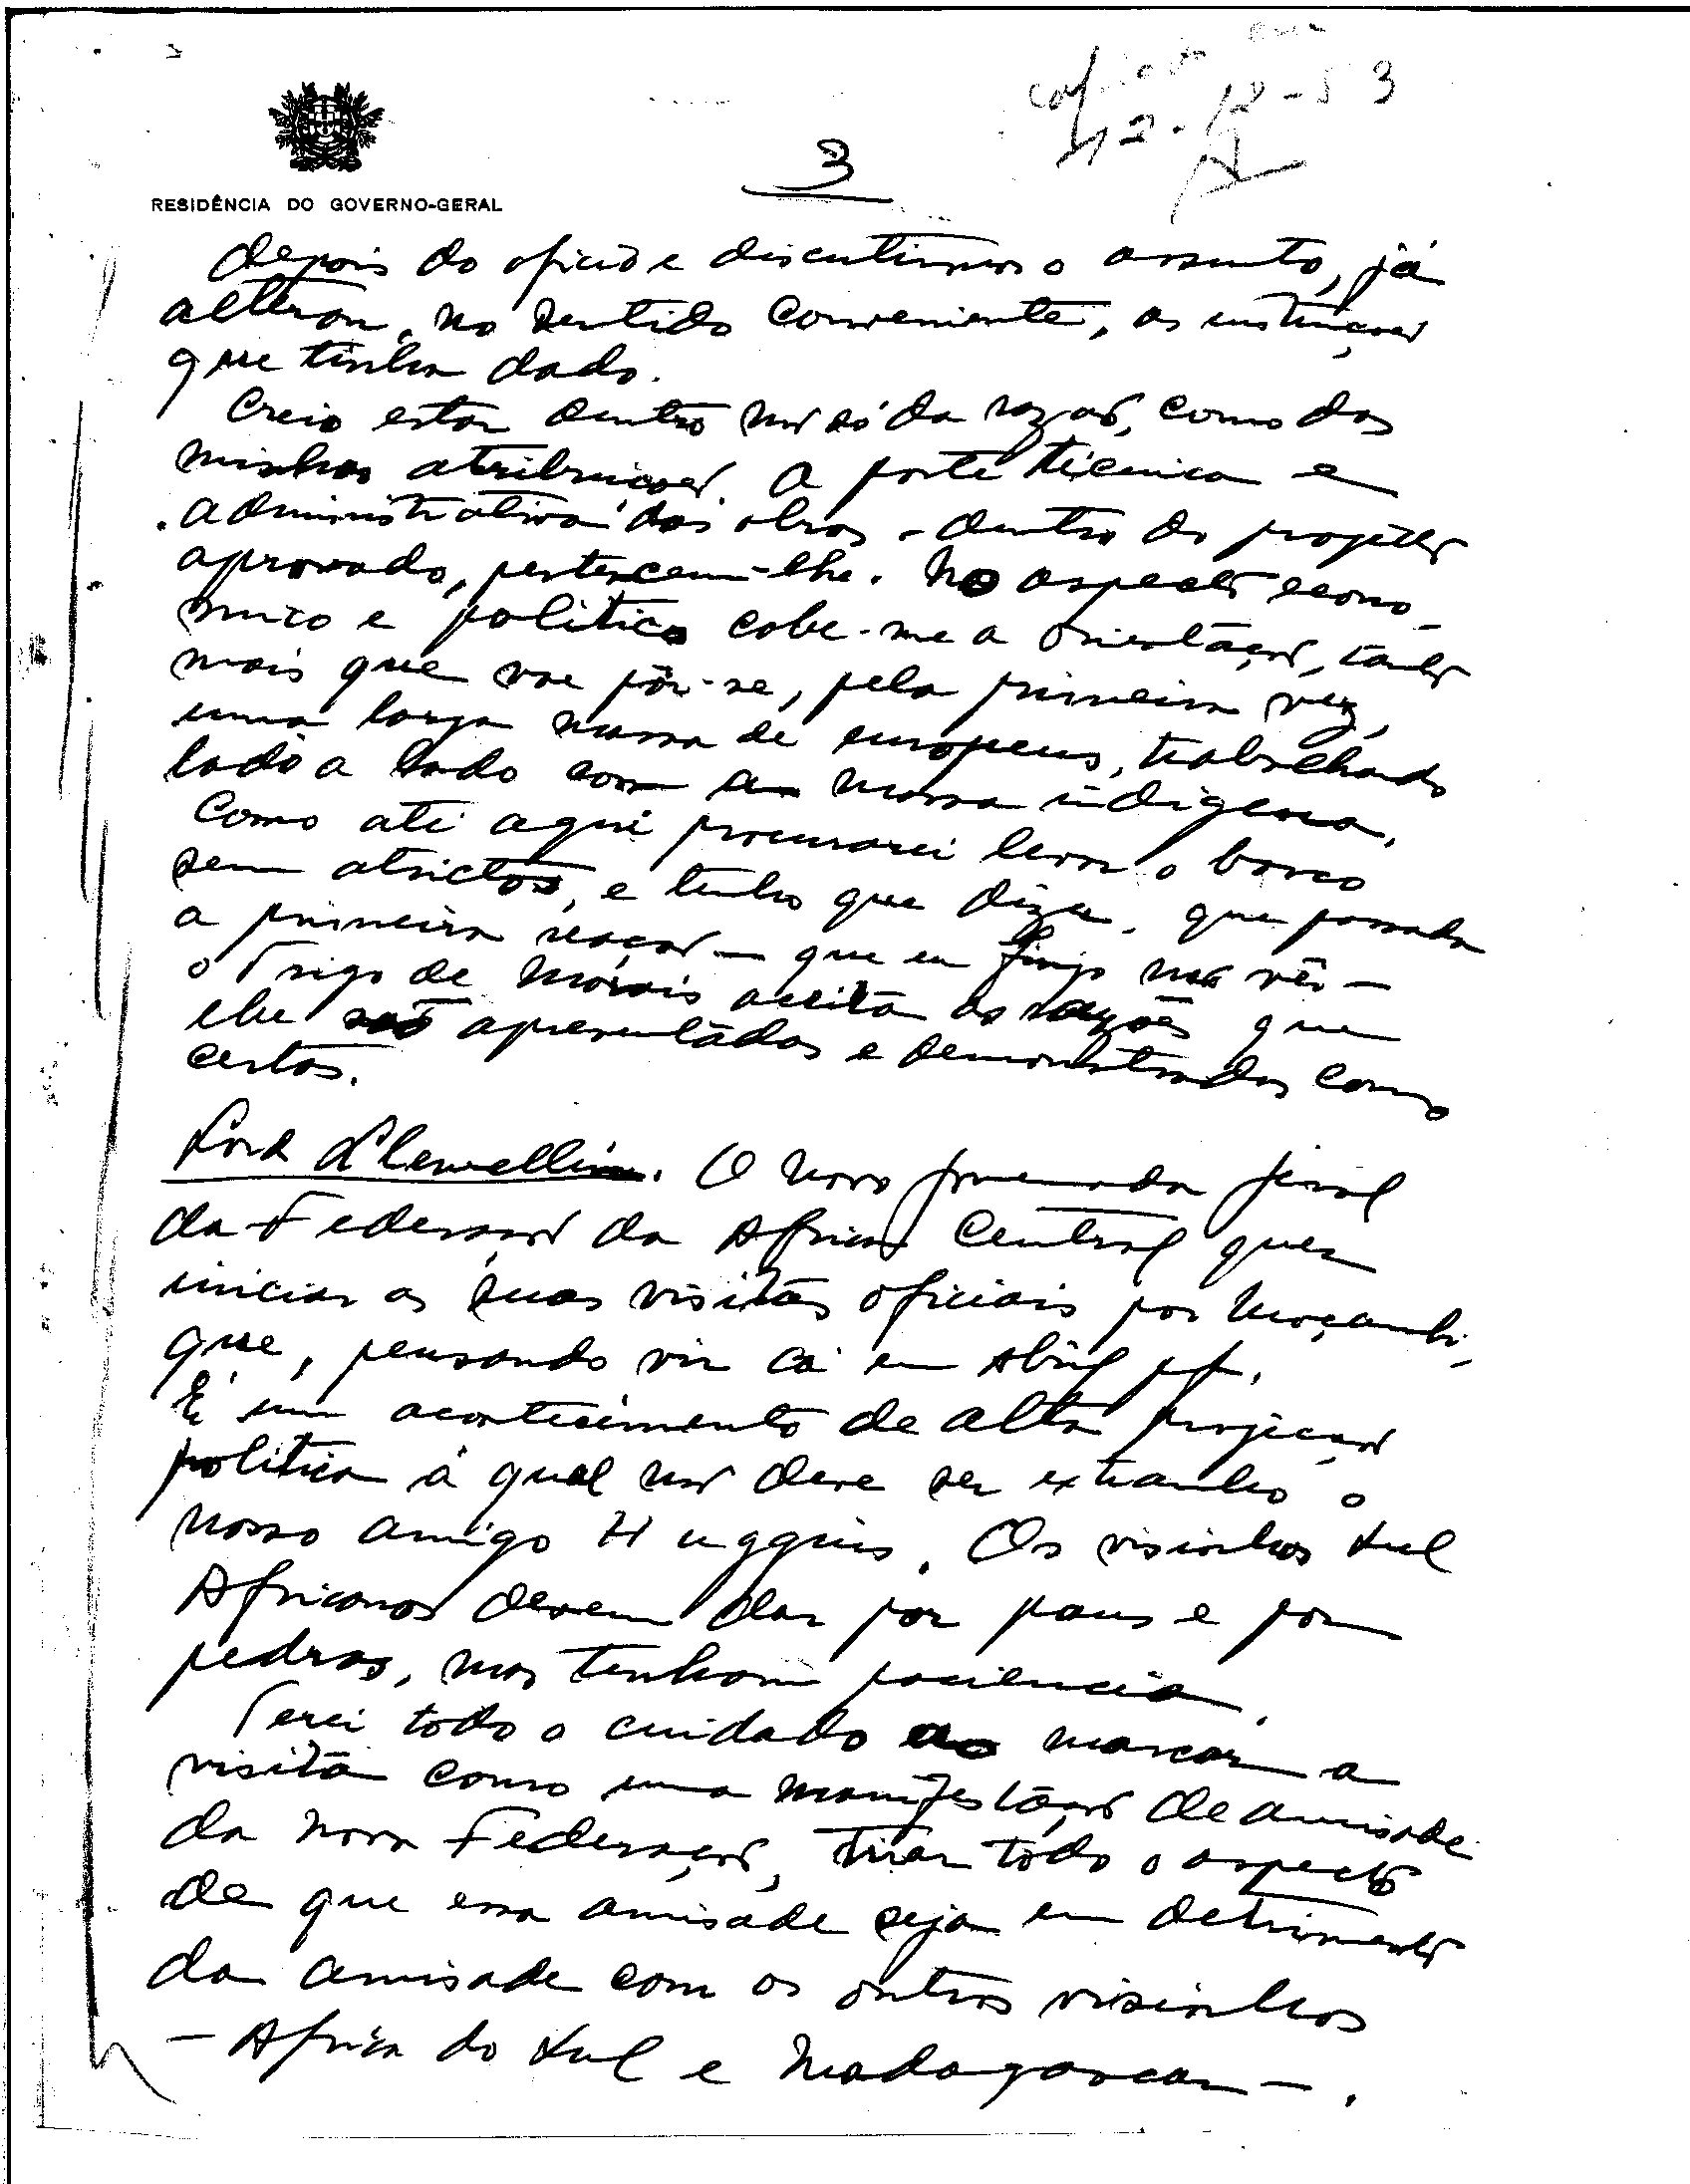 copiado em
12-12-53
3
RESIDÊNCIA DO GOVERNO-GERAL
depois do oficio e discutirmos o assunto, já
alterou, no sentido conveniente, as instruções
que tinha dado.
Creio estar dentro não só da razão, como das
minhas atribuições. A parte técnica e
administrativa das obras - dentro do projecto
aprovado, pertencem-lhe. No aspecto econo-
mico e politico cabe-me a orientação, tanto
mais que vae pôr-se, pela primeira vez,
uma larga massa de europeus, trabalhando
lado a lado com a massa indigena.
Como até aqui procurarei levar o barco
sem atrictos, e tenho que dizer, que passada
a primeira reação — que eu finjo não vêr —
o Trigo de Morais aceita as razões que
lhe são apresentadas e demonstradas como
certas.
Lord Llewellin. O novo governador geral
da Federação da Africa Central quer
iniciar as suas visitas oficiais por Moçambi-
que, pensando vir cá em Abril pf.
É um acontecimento de alta projecção
politica á qual não deve ser extranho o
nosso amigo Huggins. Os visinhos Sul
Africanos devem dar por paus e por
pedras, mas tenham paciencia.
Terei todo o cuidado ao marcar a
visita como uma manifestação de amisade
da nova Federação, tirar todo o aspecto
de que essa amisade seja em detrimento
da amisade com os outros visinhos
— Africa do Sul e Madagascar —.